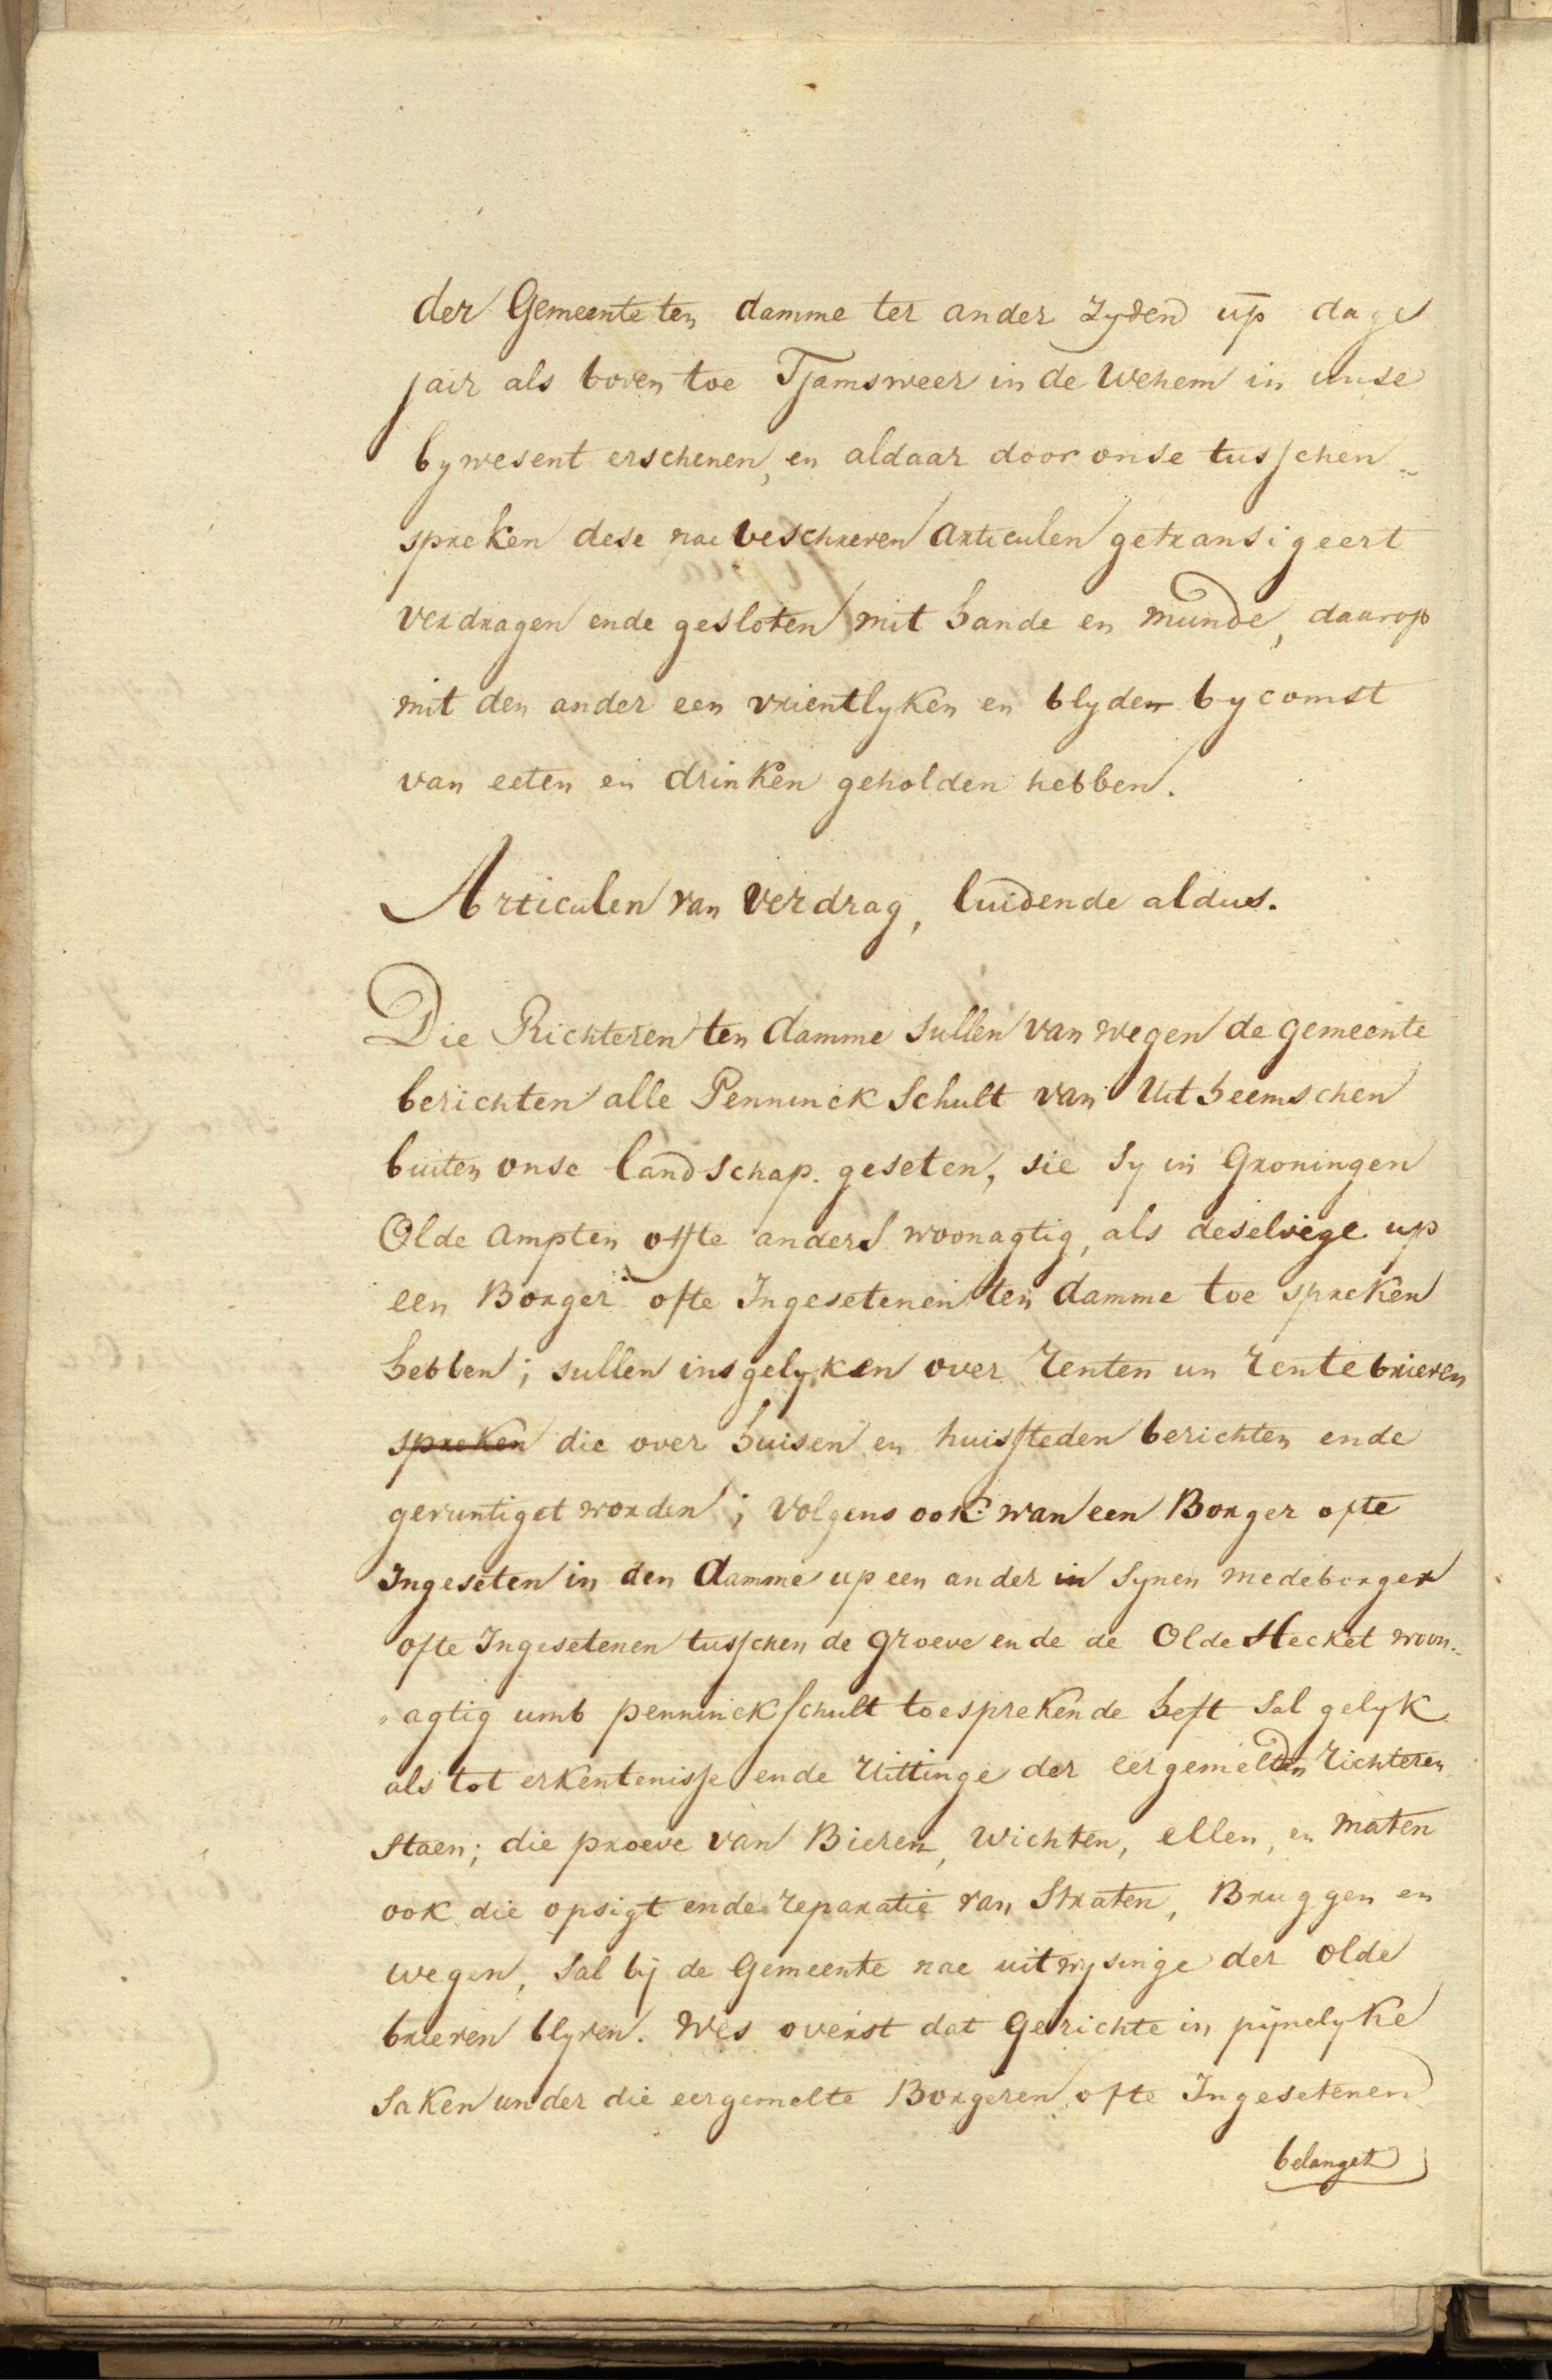 der Gemeente ten damme ter ander zyden up dage
jair als boven toe Tjamsweer in de Wehem in unse
bywesent erschenen, en aldaar door onse tusschen-
spreken dese nae beschreven Articulen getransigeert
verdragen ende gesloten mit hande en munde, daarop
mit den ander een vrientlyken en blyden bycomst
van eeten en drinken geholden hebben.
Articulen van Verdrag, luidende aldus.
Die Richteren ten damme sullen van wegen de gemeente
berichten alle Penninck Schult van Uitheemschen
buiten onse landschap. geseten, sie sy in Groningen
Olde Ampten offte anders woonagtig, als deselvige up
een Borger ofte Ingesetenen ten damme toe spreken
hebben; sullen insgelyken over renten un rentebrieven
spreken die over huisen en huissteden berichten ende
geruntiget worden; Volgens ook wan een Borger ofte
Ingeseten in den damme up een ander in Synen medeborger
ofte Ingesetenen tusschen de groeve ende de Olde Hecket woon-
agtig umb penninckschult toesprekende heft sal gelyk
als tot erkentenisse ende Uittinge der eergemelden richteren
staen; die proeve van Bieren, Wichten, ellen, en maten
ook die opsigt ende reparatie van Straten, Bruggen en
wegen, sal bij de Gemeente nae uitwysinge der olde
brieven blyven. Wes overst dat Gerichte in pijnelyke
saken under die eergemelte Borgeren ofte Ingesetenen
belanget